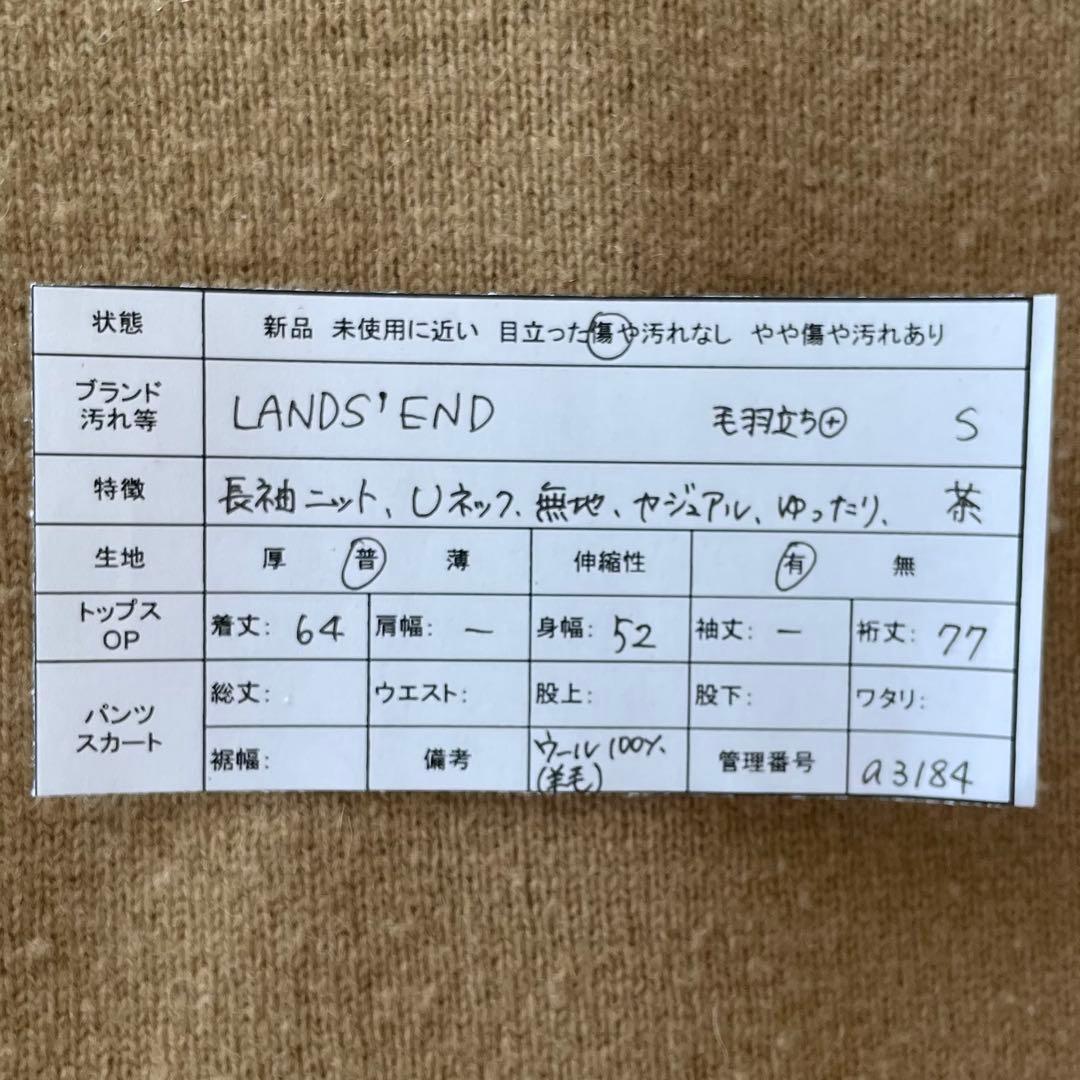 状態 新品 未使用に近い 目立った傷や汚れなし やや傷や汚れあり
ブランド
汚れ等 LANDS' END 毛羽立ち⊕ S
特徴 長袖ニット、Uネック、無地、カジュアル、ゆったり、 茶
生地 厚 普 薄 伸縮性 有 無
トップス
OP 着丈: 64 肩幅: — 身幅: 52 袖丈: — 裄丈: 77
パンツ
スカート 総丈: ウエスト: 股上: 股下: ワタリ:
裾幅: 備考 ウール100%、
(羊毛) 管理番号 a3184